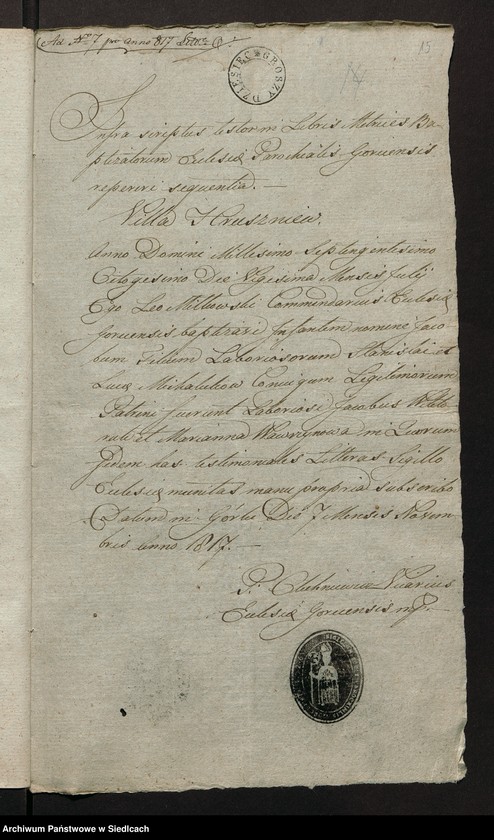 Ad No 7 pro anno 817 Litt. B.
15
DZIESIĘC GROSZY
Infra scriptus testor in Libris Metrices Ba-
ptizatorum Eclesiæ Parochialis Goruensis
reperire sequentia. —
Villa Hruszniew.
Anno Domini Millesimo Septingentesimo
Octogesimo Die Vigesima Mensis Julij
Ego Leo Milkowski Commendarius Eclesiæ
Goruensis baptizavi Infantem nomine Jaco-
bum Filium Laboriosorum Stanislai et
Luciæ Michalukow Coniugum Legitimorum
Patrini fuerunt Laboriosi Jacobus
et Marianna Wawrynowa in Quorum
Fidem has testimoniales Litteras Sigillo
Eclesiæ munitas manu propria subscribo
Datum in Górki Die 7 Mensis Novem-
bris anno 1817. —
P. Vicarius
Eclesiæ Goruensis mp. —
Archiwum Państwowe w Siedlcach